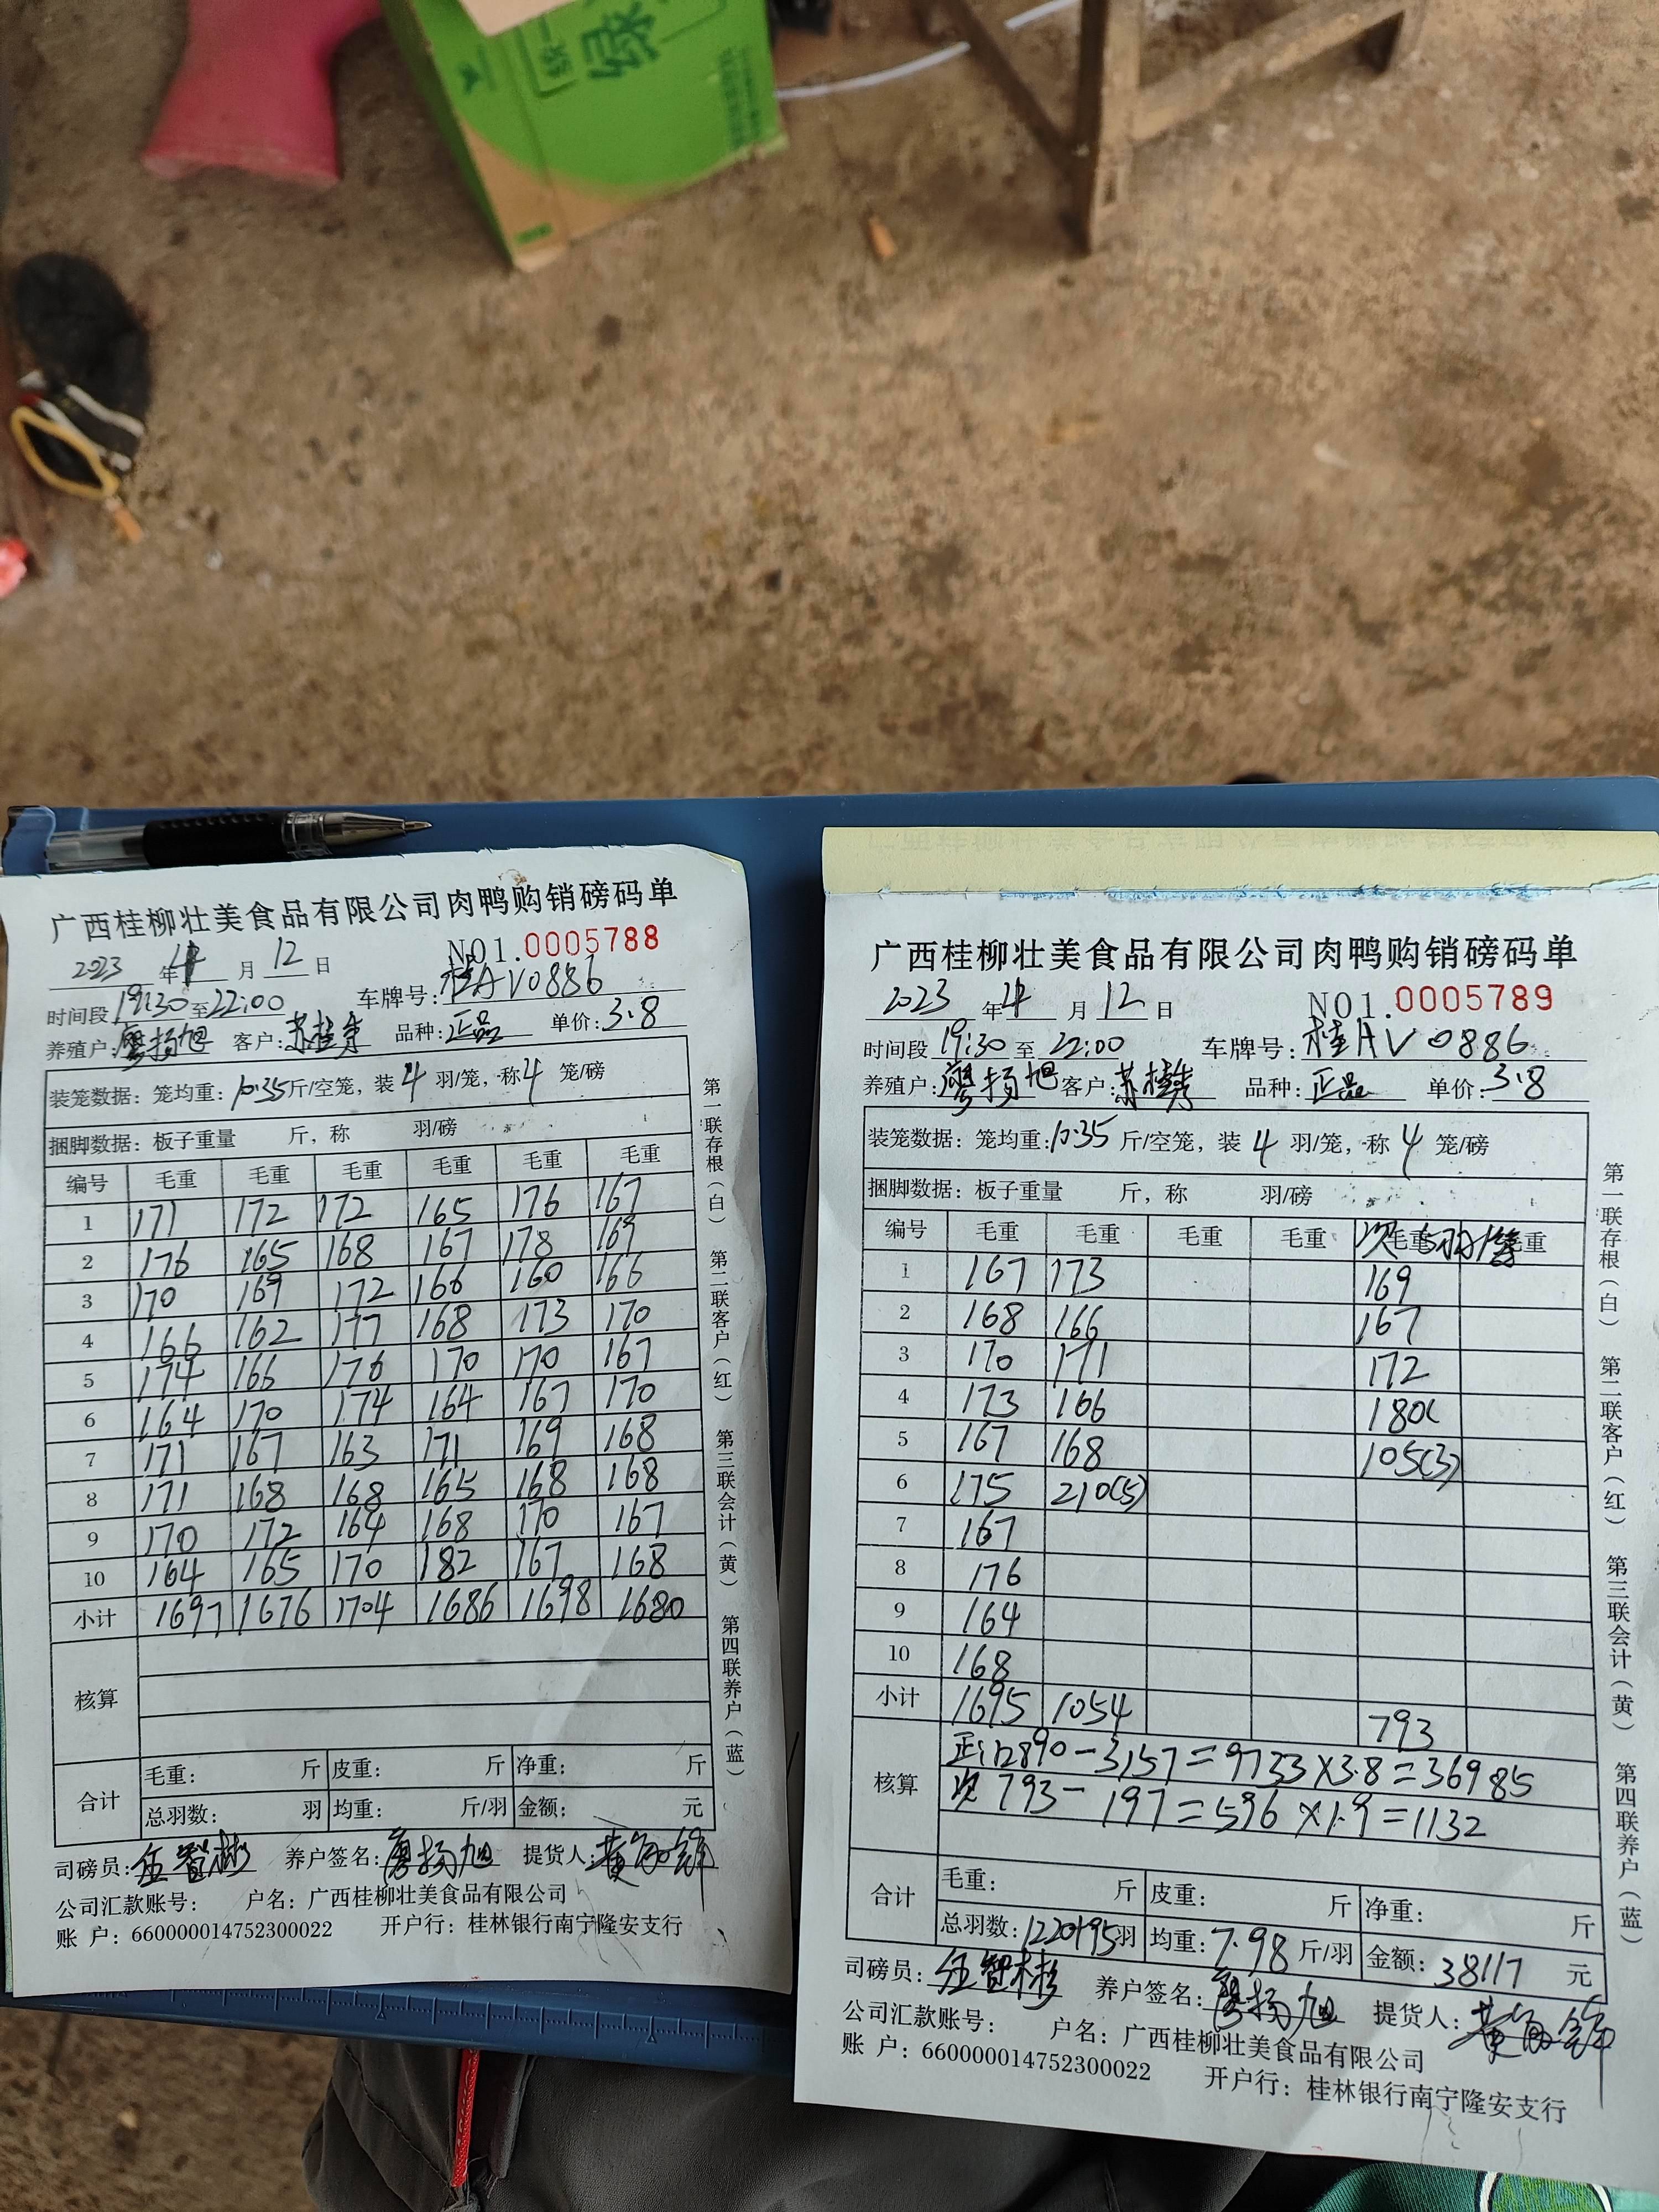 绿
广西桂柳壮美食品有限公司肉鸭购销磅码单
2023 年 4 月 12 日 NO1.0005788
时间段 19:30 至 22:00 车牌号: 桂AV0886
养殖户: 廖扬旭 客户: 苏桂 品种: 正品 单价: 3.8
装笼数据: 笼均重: 10.35 斤/空笼, 装 4 羽/笼, 称 4 笼/磅
捆脚数据: 板子重量 斤, 称 羽/磅
编号 毛重 毛重 毛重 毛重 毛重 毛重
1 171 172 172 165 176 167
2 176 165 168 167 178 169
3 170 169 172 166 160 166
4 166 162 177 168 173 170
5 174 166 176 170 170 167
6 164 170 174 164 167 170
7 171 167 163 171 169 168
8 171 168 168 165 168 168
9 170 172 164 168 170 167
10 164 165 170 182 167 168
小计 1697 1676 1704 1686 1698 1680
核算
合计 毛重: 斤 皮重: 斤 净重: 斤
总羽数: 羽 均重: 斤/羽 金额: 元
司磅员: 伍智彬 养户签名: 廖扬旭 提货人: 黄
公司汇款账号: 户名: 广西桂柳壮美食品有限公司
账 户: 660000014752300022 开户行: 桂林银行南宁隆安支行
第一联存根(白) 第二联客户(红) 第三联会计(黄) 第四联养户(蓝)
广西桂柳壮美食品有限公司肉鸭购销磅码单
2023 年 4 月 12 日 NO1.0005789
时间段 19:30 至 22:00 车牌号: 桂AV0886
养殖户: 廖扬旭 客户: 苏桂 品种: 正品 单价: 3.8
装笼数据: 笼均重: 10.35 斤/空笼, 装 4 羽/笼, 称 4 笼/磅
捆脚数据: 板子重量 斤, 称 羽/磅
编号 毛重 毛重 毛重 毛重 次 毛重 5羽/笼 毛重
1 167 173 169
2 168 166 167
3 170 171 172
4 173 166 180
5 167 168 105(3)
6 175 210(5)
7 167
8 176
9 164
10 168
小计 1695 1054 793
核算 正:12890-3157=9733×3.8=36985
次 793-197=596×1.9=1132
合计 毛重: 斤 皮重: 斤 净重: 斤
总羽数: 1220+95 羽 均重: 7.98 斤/羽 金额: 38117 元
司磅员: 伍智彬 养户签名: 廖扬旭 提货人: 黄
公司汇款账号: 户名: 广西桂柳壮美食品有限公司
账 户: 660000014752300022 开户行: 桂林银行南宁隆安支行
第一联存根(白) 第二联客户(红) 第三联会计(黄) 第四联养户(蓝)